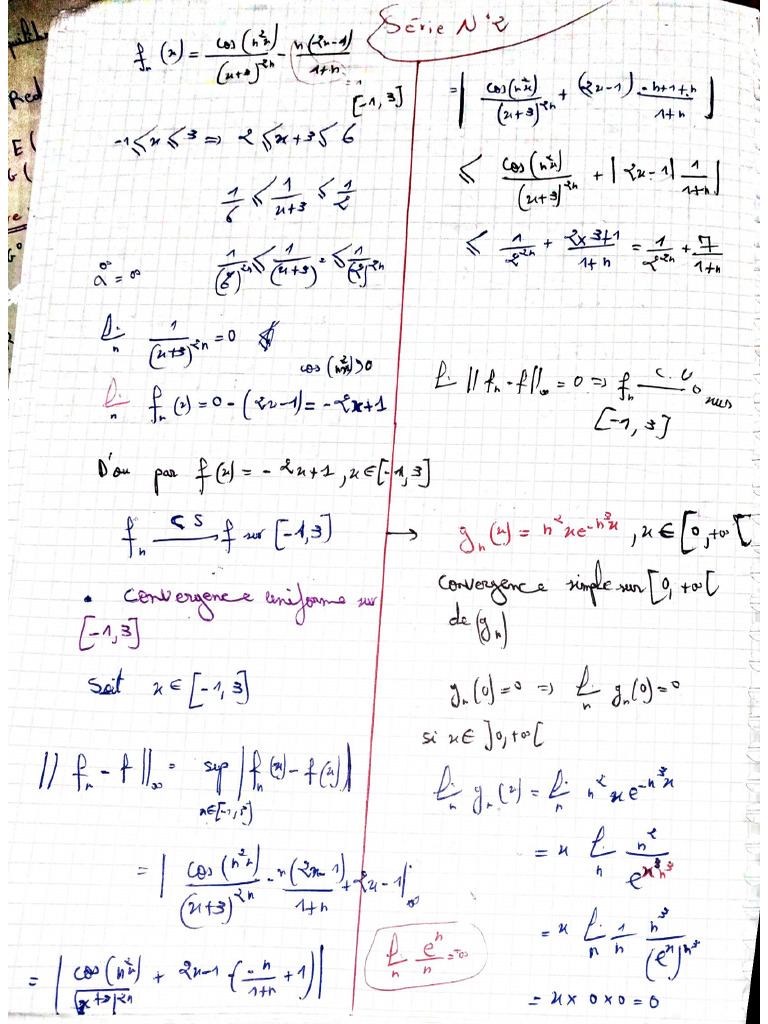 Série N°2
f_n(x) = cos(n²x)/(x+3)^{2n} - n(2x-1)/(1+n)
[-1, 3]
-1 ≤ x ≤ 3 => 2 ≤ x+3 ≤ 6
1/6 ≤ 1/(x+3) ≤ 1/2
a^∞ = ∞
1/(6)^{2n} ≤ 1/(x+3)^{2n} ≤ 1/(2)^{2n}
lim_n 1/(x+3)^{2n} = 0
cos(n²x) > 0
lim_n f_n(x) = 0 - (2x-1) = -2x+1
D'ou par f(x) = -2x+1, x∈[-1,3]
f_n —CS→ f sur [-1,3]
• Convergence uniforme sur
[-1,3]
Soit x ∈ [-1,3]
||f_n - f||_∞ = sup_{x∈[-1,3]} |f_n(x) - f(x)|
= | cos(n²x)/(x+3)^{2n} - n(2x-1)/(1+n) + 2x-1 |_∞
= | cos(n²x)/(x+3)^{2n} + 2x-1 (-n/(1+n) + 1) |
= | cos(n²x)/(x+3)^{2n} + (2x-1) -n+1+n/(1+n) |
≤ cos(n²x)/(x+3)^{2n} + |2x-1| 1/(1+n) |
≤ 1/2^{2n} + (2×3+1)/(1+n) = 1/2^{2n} + 7/(1+n)
lim ||f_n - f||_∞ = 0 => f_n —C.U→
[-1,3]
→ g_n(x) = n²xe^{-n³x}, x∈[0,+∞[
Convergence simple sur [0,+∞[
de (g_n)
g_n(0) = 0 => lim_n g_n(0) = 0
si x∈]0,+∞[
lim_n g_n(x) = lim_n n²xe^{-n³x}
= x lim_n n²/e^{x³n³}
= x lim_n 1/n n³/(e^x)^{n³}
= x × 0 × 0 = 0
lim_n e^n/n = +∞